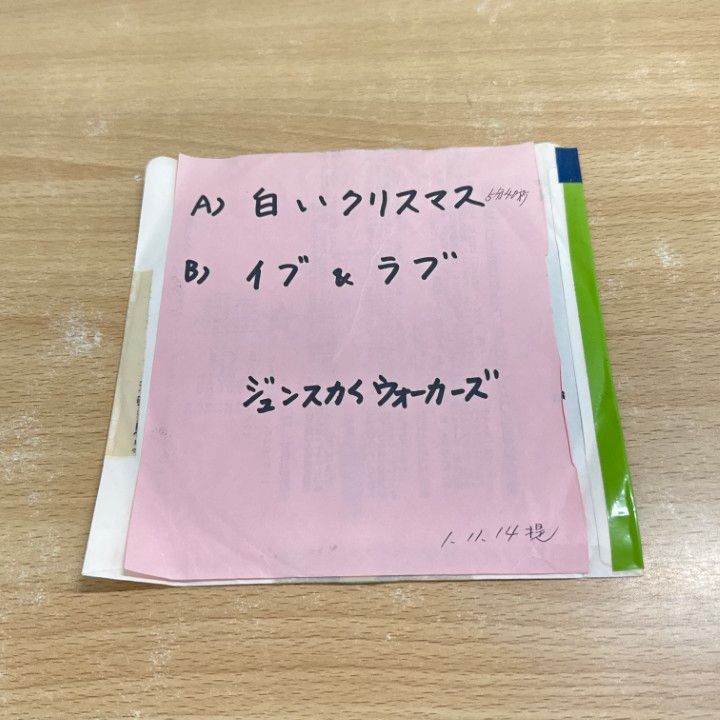 A) 白いクリスマス 5分40秒
B) イブ & ラブ
ジュンスカくウォーカーズ
1.11.14 提